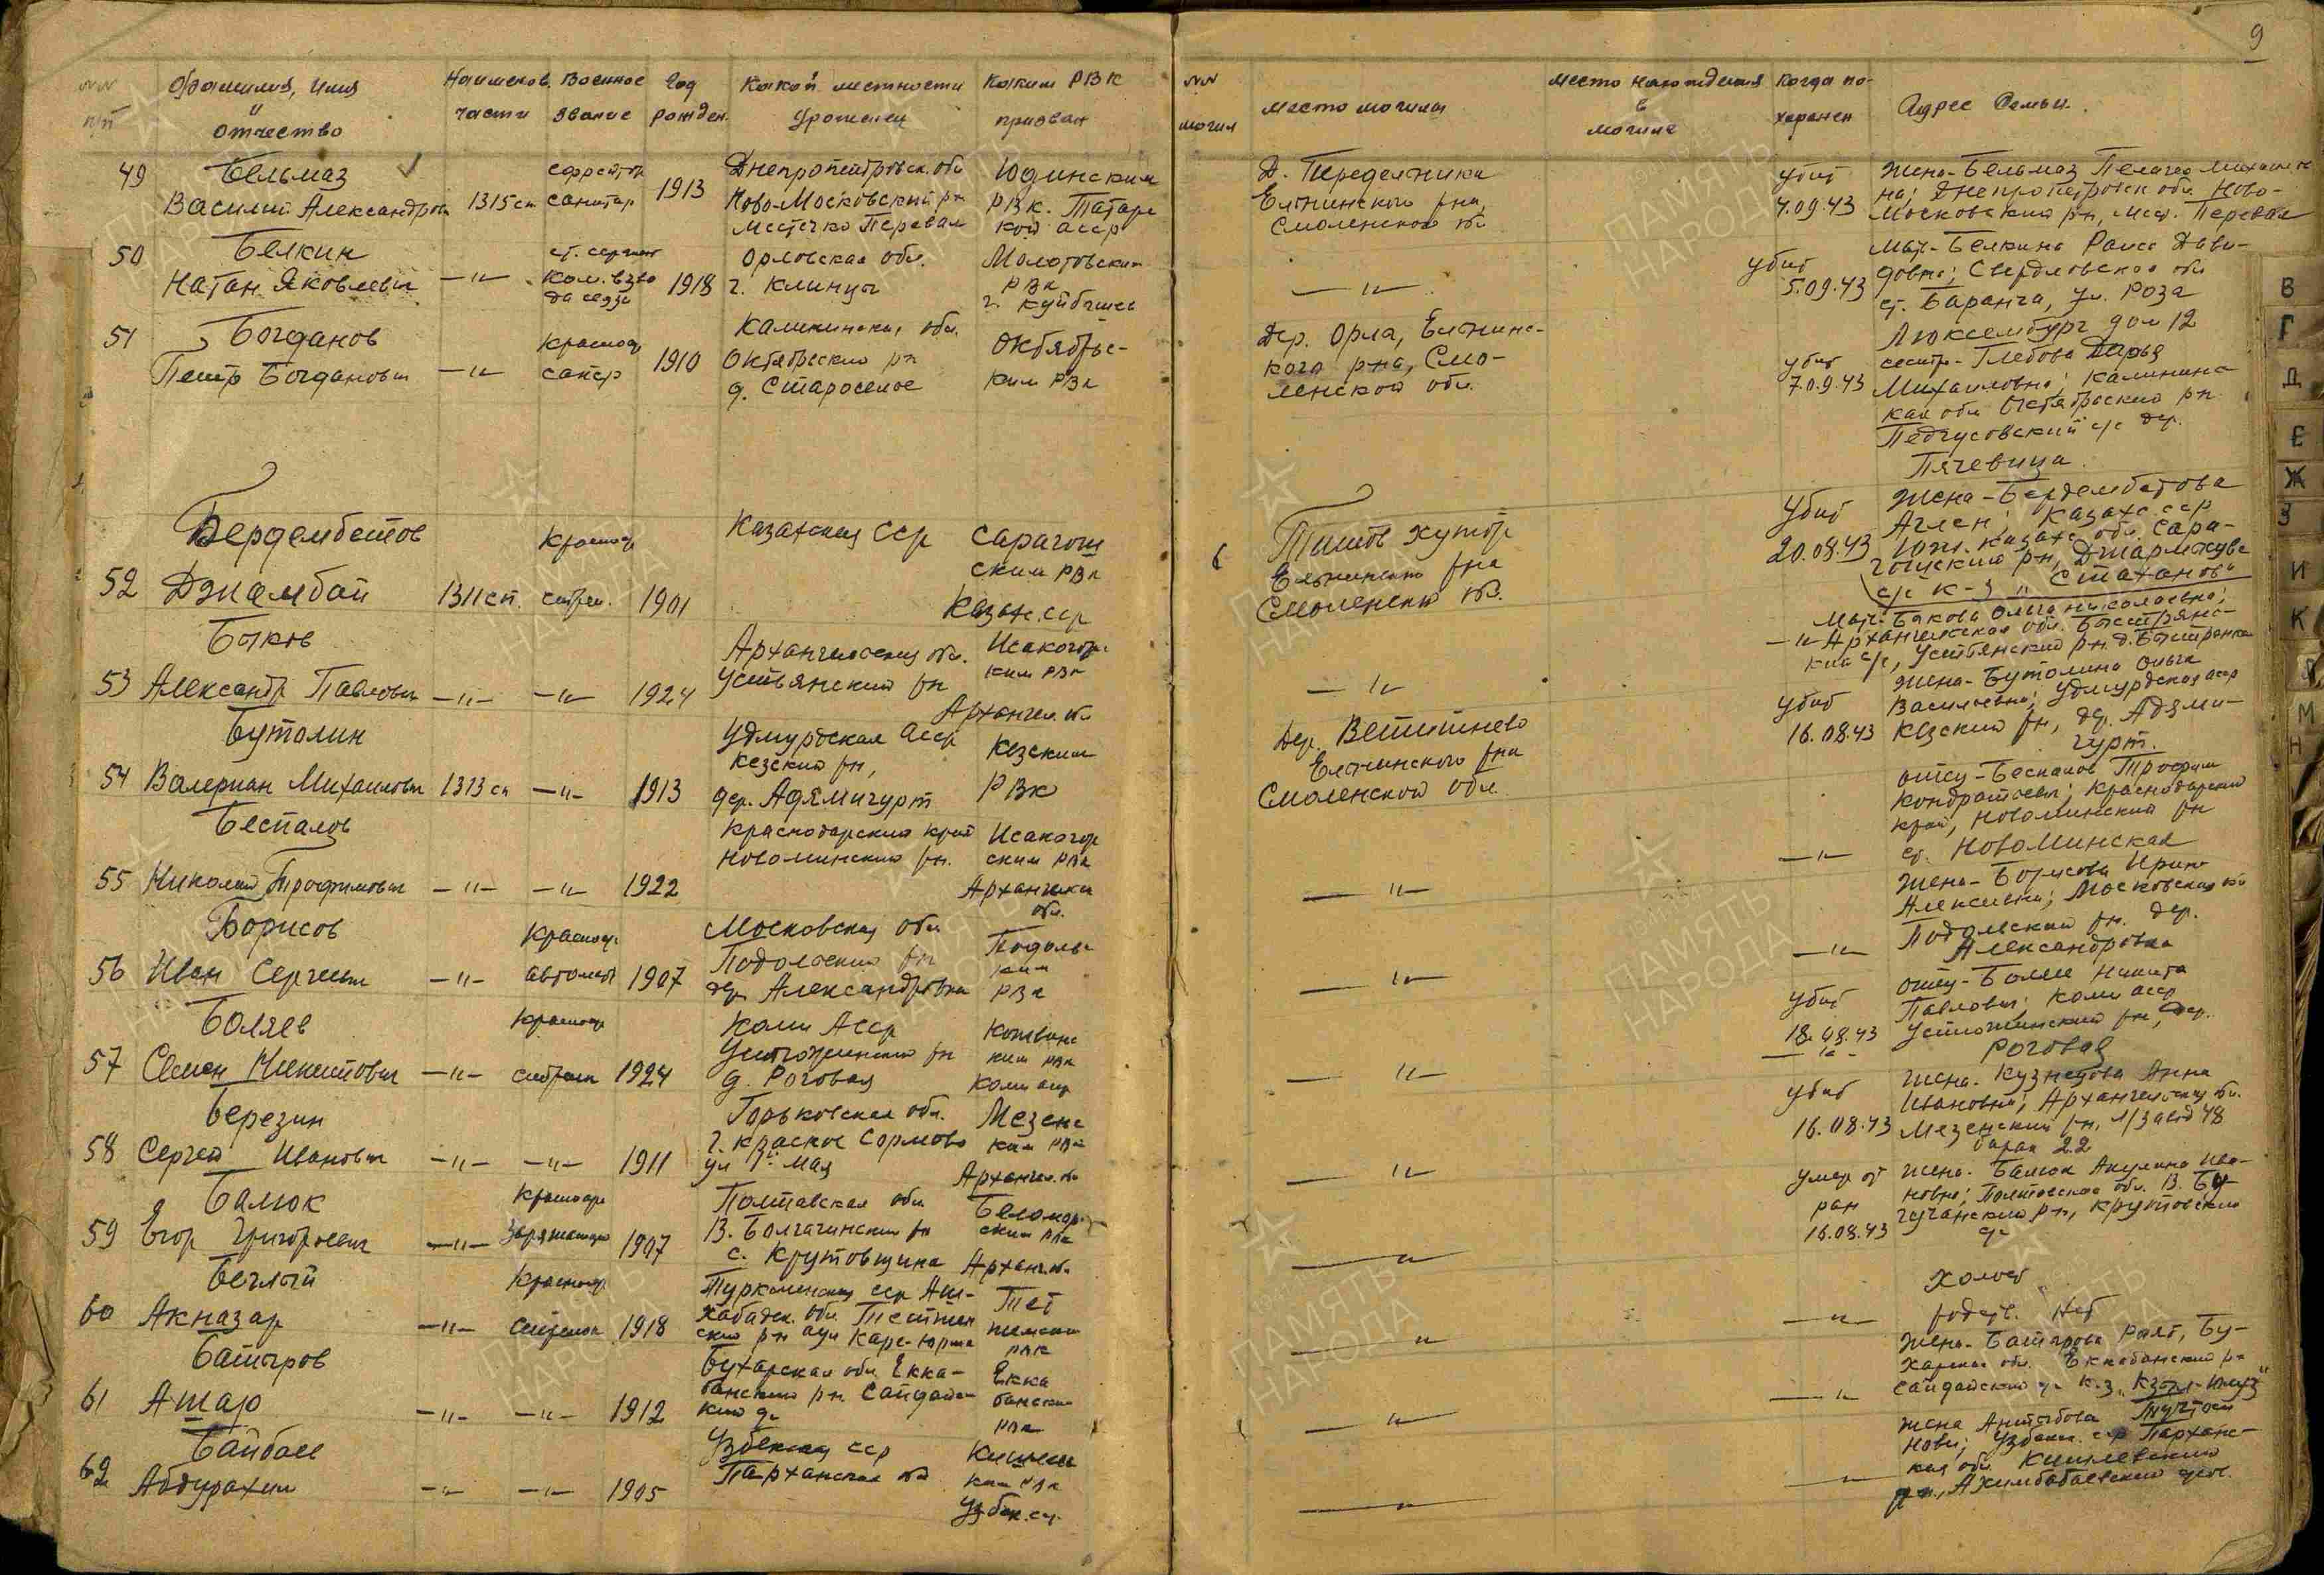 9
NN п/п Фамилия, имя и отчество Наименов. части Военное звание Год рожден. Какой местности уроженец Каким РВК призван NN могил Место могилы Место нахождения в могиле Когда похоронен Адрес семьи.
49 Бельмаз
Василий Александров 1315сп санитар 1913
Днепропетровск. обл
Ново-Московский рн
местечко Перевал
Юдинским
РВК. Татарс
кой АССР
Д. Переделники
Елнинского рна,
Смоленской
убит
7.09.43
Жена-Бельмаз Пелагея Михайлов
на; Днепропетровск обл. Ново-
Московский рн, мест. Перевал
50 Белкин
Натан Яковлевич —"— ст. сержант
ком. взво
да связи 1918
Орловская обл.
г. Клинцы
Молотовским
РВК
г. Куйбышев
—"—
убит
5.09.43
Мать-Белкина Раиса Дави-
довна; Свердловская обл
ст. Баранча, ул. Роза
Люксембург дом 12
51 Богданов
Петр Богданович —"— Красноар
сапер 1910
Калининская обл.
Октябрьский рн
д. Староселое
Октябрьс-
ким РВК
Дер. Орла, Елнинс-
кого р-на, Смо-
ленской обл.
убит
7.09.43
сестра-Глебова Дарья
Михайловна; Калининс
кая обл Октябрьский рн
с/с дер.
Пячевица
Бердембетов
52 Джамбай 1311сп. Красноар
стрел. 1901
Казахская ССР
Сарагаш
ским РВК
Казах. сср
6
Титов хутор
Елнинского рна
Смоленской
Убит
20.08.43
Жена-Бердембетова
Аглен; Казахс. сср
Юж. Казахс. обл. Сара-
гашский рн,
с/с к-з "Стаханов"
Быков
53 Александр Павлович —"— —"— 1924
Архангельская обл.
Устьянский рн
Исакогорс
ким РВК
Архангел.
—"—
—"—
Мать-Бакова Ольга Николаевна;
Архангельская обл. Быстрянс-
кий с/с, Устьянский рн. д.
Бутолин
54 Валериан Михайлович 1313сп —"— 1913
Удмурдская АССР
Кезский рн,
дер. Адямигурт
Кезским
РВК
Дер. Ветитнево
Елнинского рна
Смоленской обл.
убит
16.08.43
Жена-Бутолина Ольга
Васильевна; Удмурдская асср
Кезский рн, дер. Адями-
гурт.
Беспалов
55 Николай Трофимович —"— —"— 1922
Краснодарский край
Новоминский рн.
Исакогор
ским РВК
Архангельс
обл.
—"—
—"—
отец-Беспалов Трофим
Кондратьевич; Краснодарский
край, Новоминский рн
ст. Новоминская
Борисов
56 Иван Сергеевич —"— Красноар.
автомат 1907
Московская обл
Подольский рн
дер. Александровка
Подольс
ким
РВК
—"—
—"—
Жена-Борисова Ирина
Алексеевна; Московская
Подольский рн. дер.
Александровка
Боляев
57 Семен Никитович —"— Красноар
стрелок 1924
Коми АССР
рн
д. Роговая
Кожвинс
ким РВК
Коми асср
—"—
убит
18.08.43
—"—
отец-Боляев Никита
Павлович; Коми асср
рн, дер.
Роговая
Березин
58 Сергей Иванович —"— —"— 1911
Горьковская обл.
г. Красное Сормово
ул 1е Мая
Мезенс
ким РВК
Архангел.
—"—
убит
16.08.43
Жена-Кузнецова Анна
Ивановна; Архангельская
Мезенский рн, л/завод 48
барак 22
Балюк
59 Егор Григорьевич —"— Красноар
1907
Полтавская обл
В. Богачинский рн
с. Крутовщина
Беломор-
ским РВК
—"—
умер от
ран
16.08.43
Жена-Балюк Акулина Ива-
новна; Полтавская обл. В. Бу-
гучанский рн, Крутовский
с/с
Беглый
60 Акназар —"— Красноар
стрелок 1918
Туркменская сср Аш-
хабадск. обл.
ский рн аул
РВК
—"—
—"—
Холост
родств. Нет
Батыров
61 Ашар —"— —"— 1912
Бухарская обл. Екка-
банский рн
Екка
банским
РВК
—"—
—"—
Жена-Батырова Бу-
харская обл. Еккабанский рн
Байбаев
62 Абдурахим —"— —"— 1905
Узбекская сср
обл
РВК
Узбек. сср
—"—
—"—
Жена
В
Г
Д
Е
Ж
З
И
К
Л
М
Н
ПАМЯТЬ НАРОДА